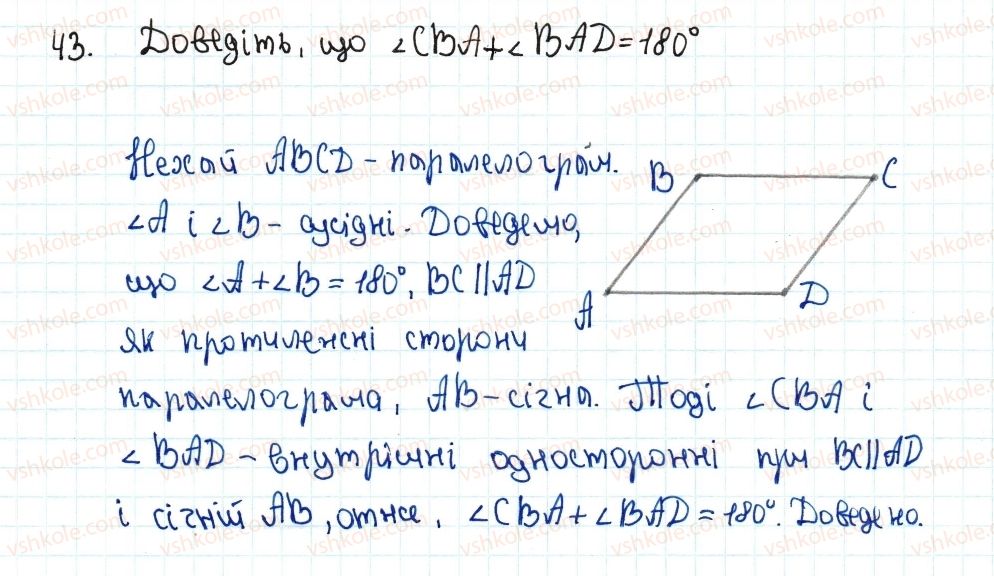 43. Доведіть, що ∠CBA+∠BAD=180°
Нехай ABCD - паралелограм.
∠A і ∠B - сусідні. Доведемо,
що ∠A+∠B=180°, BC||AD
як протилежні сторони
паралелограма, AB-січна. Тоді ∠CBA і
∠BAD - внутрішні односторонні при BC||AD
і січній AB, отже, ∠CBA+∠BAD=180°. Доведено.
B
C
A
D
vshkole.com